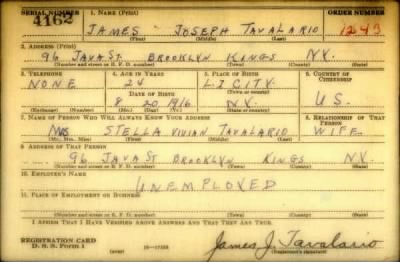 SERIAL NUMBER 1. NAME (Print) ORDER NUMBER
4162 JAMES JOSEPH TAVALARIO 1243
(First) (Middle) (Last)
2. ADDRESS (Print)
96 JAVA ST. BROOKLYN KINGS N.Y.
(Number and street or R. F. D. number) (Town) (County) (State)
3. TELEPHONE 4. AGE IN YEARS 5. PLACE OF BIRTH 6. COUNTRY OF CITIZENSHIP
NONE 24 L I CITY.
DATE OF BIRTH (Town or county)
8 20 1916 N.Y. U.S.
(Exchange) (Number) (Mo.) (Day) (Yr.) (State or country)
7. NAME OF PERSON WHO WILL ALWAYS KNOW YOUR ADDRESS 8. RELATIONSHIP OF THAT PERSON
MRS STELLA VIVIAN TAVALARIO WIFE
(Mr., Mrs., Miss) (First) (Middle) (Last)
9. ADDRESS OF THAT PERSON
96 JAVA ST BROOKLYN KINGS N.Y.
(Number and street or R. F. D. number) (Town) (County) (State)
10. EMPLOYER'S NAME
UNEMPLOYED
11. PLACE OF EMPLOYMENT OR BUSINESS
(Number and street or R. F. D. number) (Town) (County) (State)
I AFFIRM THAT I HAVE VERIFIED ABOVE ANSWERS AND THAT THEY ARE TRUE.
REGISTRATION CARD
D. S. S. Form 1 (over) James J. Tavalario
(Registrant's signature)